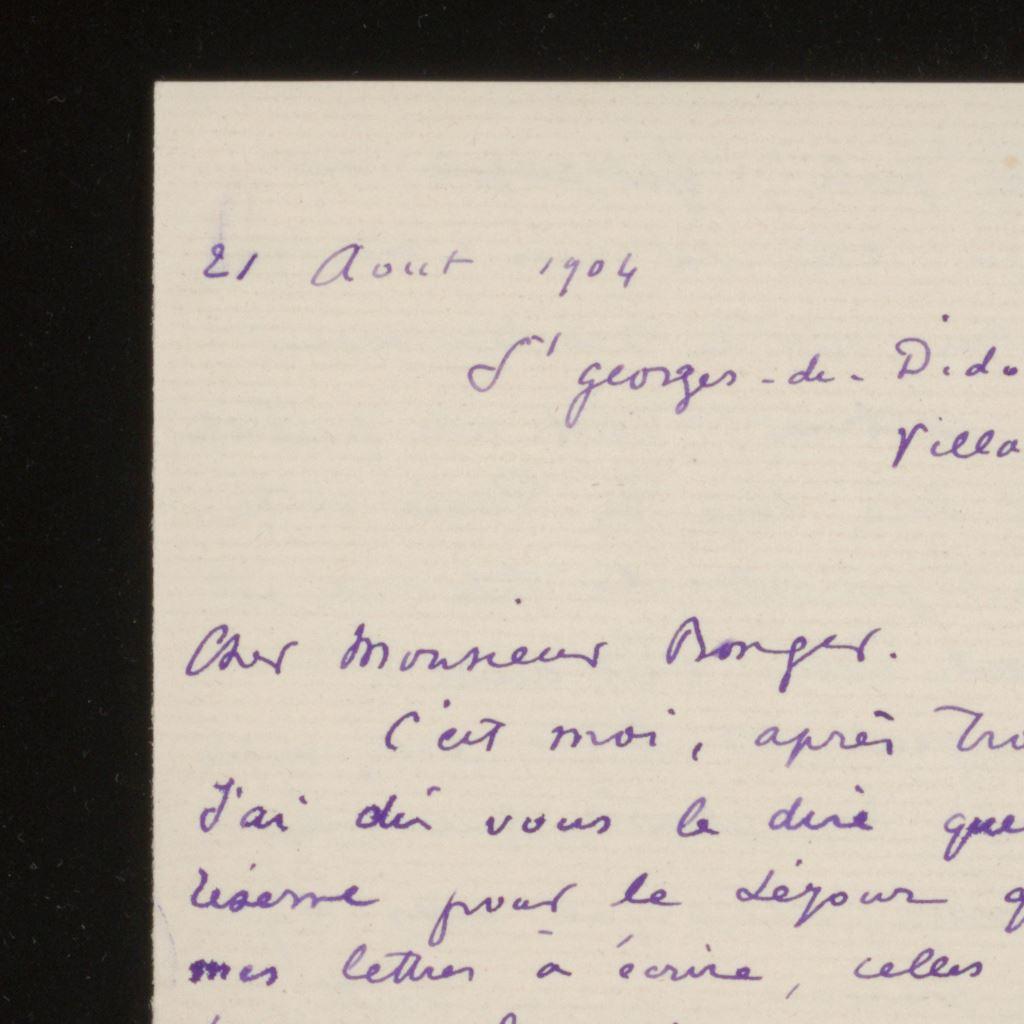 21 Aout 1904
St georges-de-Dido
Villa
Cher Monsieur Bonger.
C'est moi, après tro
J'ai dû vous le dire que
réserve pour le séjour q
mes lettres à écrire, celles